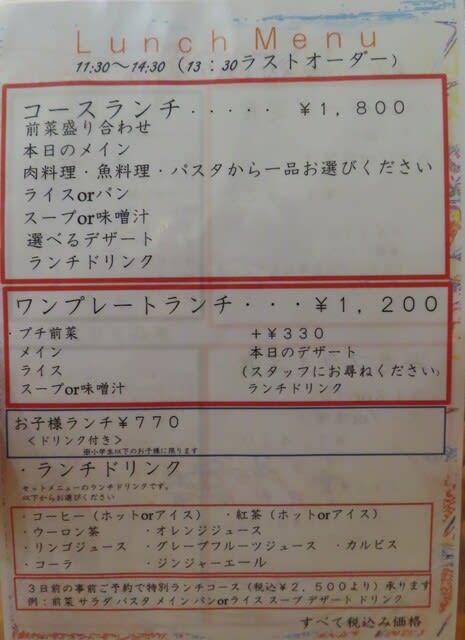 Lunch Menu
11:30～14:30（13：30ラストオーダー）
コースランチ・・・・・ ¥1,800
前菜盛り合わせ
本日のメイン
肉料理・魚料理・パスタから一品お選びください
ライスorパン
スープor味噌汁
選べるデザート
ランチドリンク
ワンプレートランチ・・・¥1,200
・プチ前菜 ＋¥330
メイン 本日のデザート
ライス (スタッフにお尋ねください)
スープor味噌汁 ランチドリンク
お子様ランチ¥770
＜ドリンク付き＞
※小学生以下のお子様に限ります
・ランチドリンク
セットメニューのランチドリンクです。
以下からお選びください
・コーヒー（ホットorアイス） ・紅茶（ホットorアイス）
・ウーロン茶 ・オレンジジュース
・リンゴジュース ・グレープフルーツジュース ・カルピス
・コーラ ・ジンジャーエール
3日前の事前ご予約で特別ランチコース（税込¥2,500より）承ります
例：前菜 サラダ パスタ メイン パンorライス スープ デザート ドリンク
すべて税込み価格